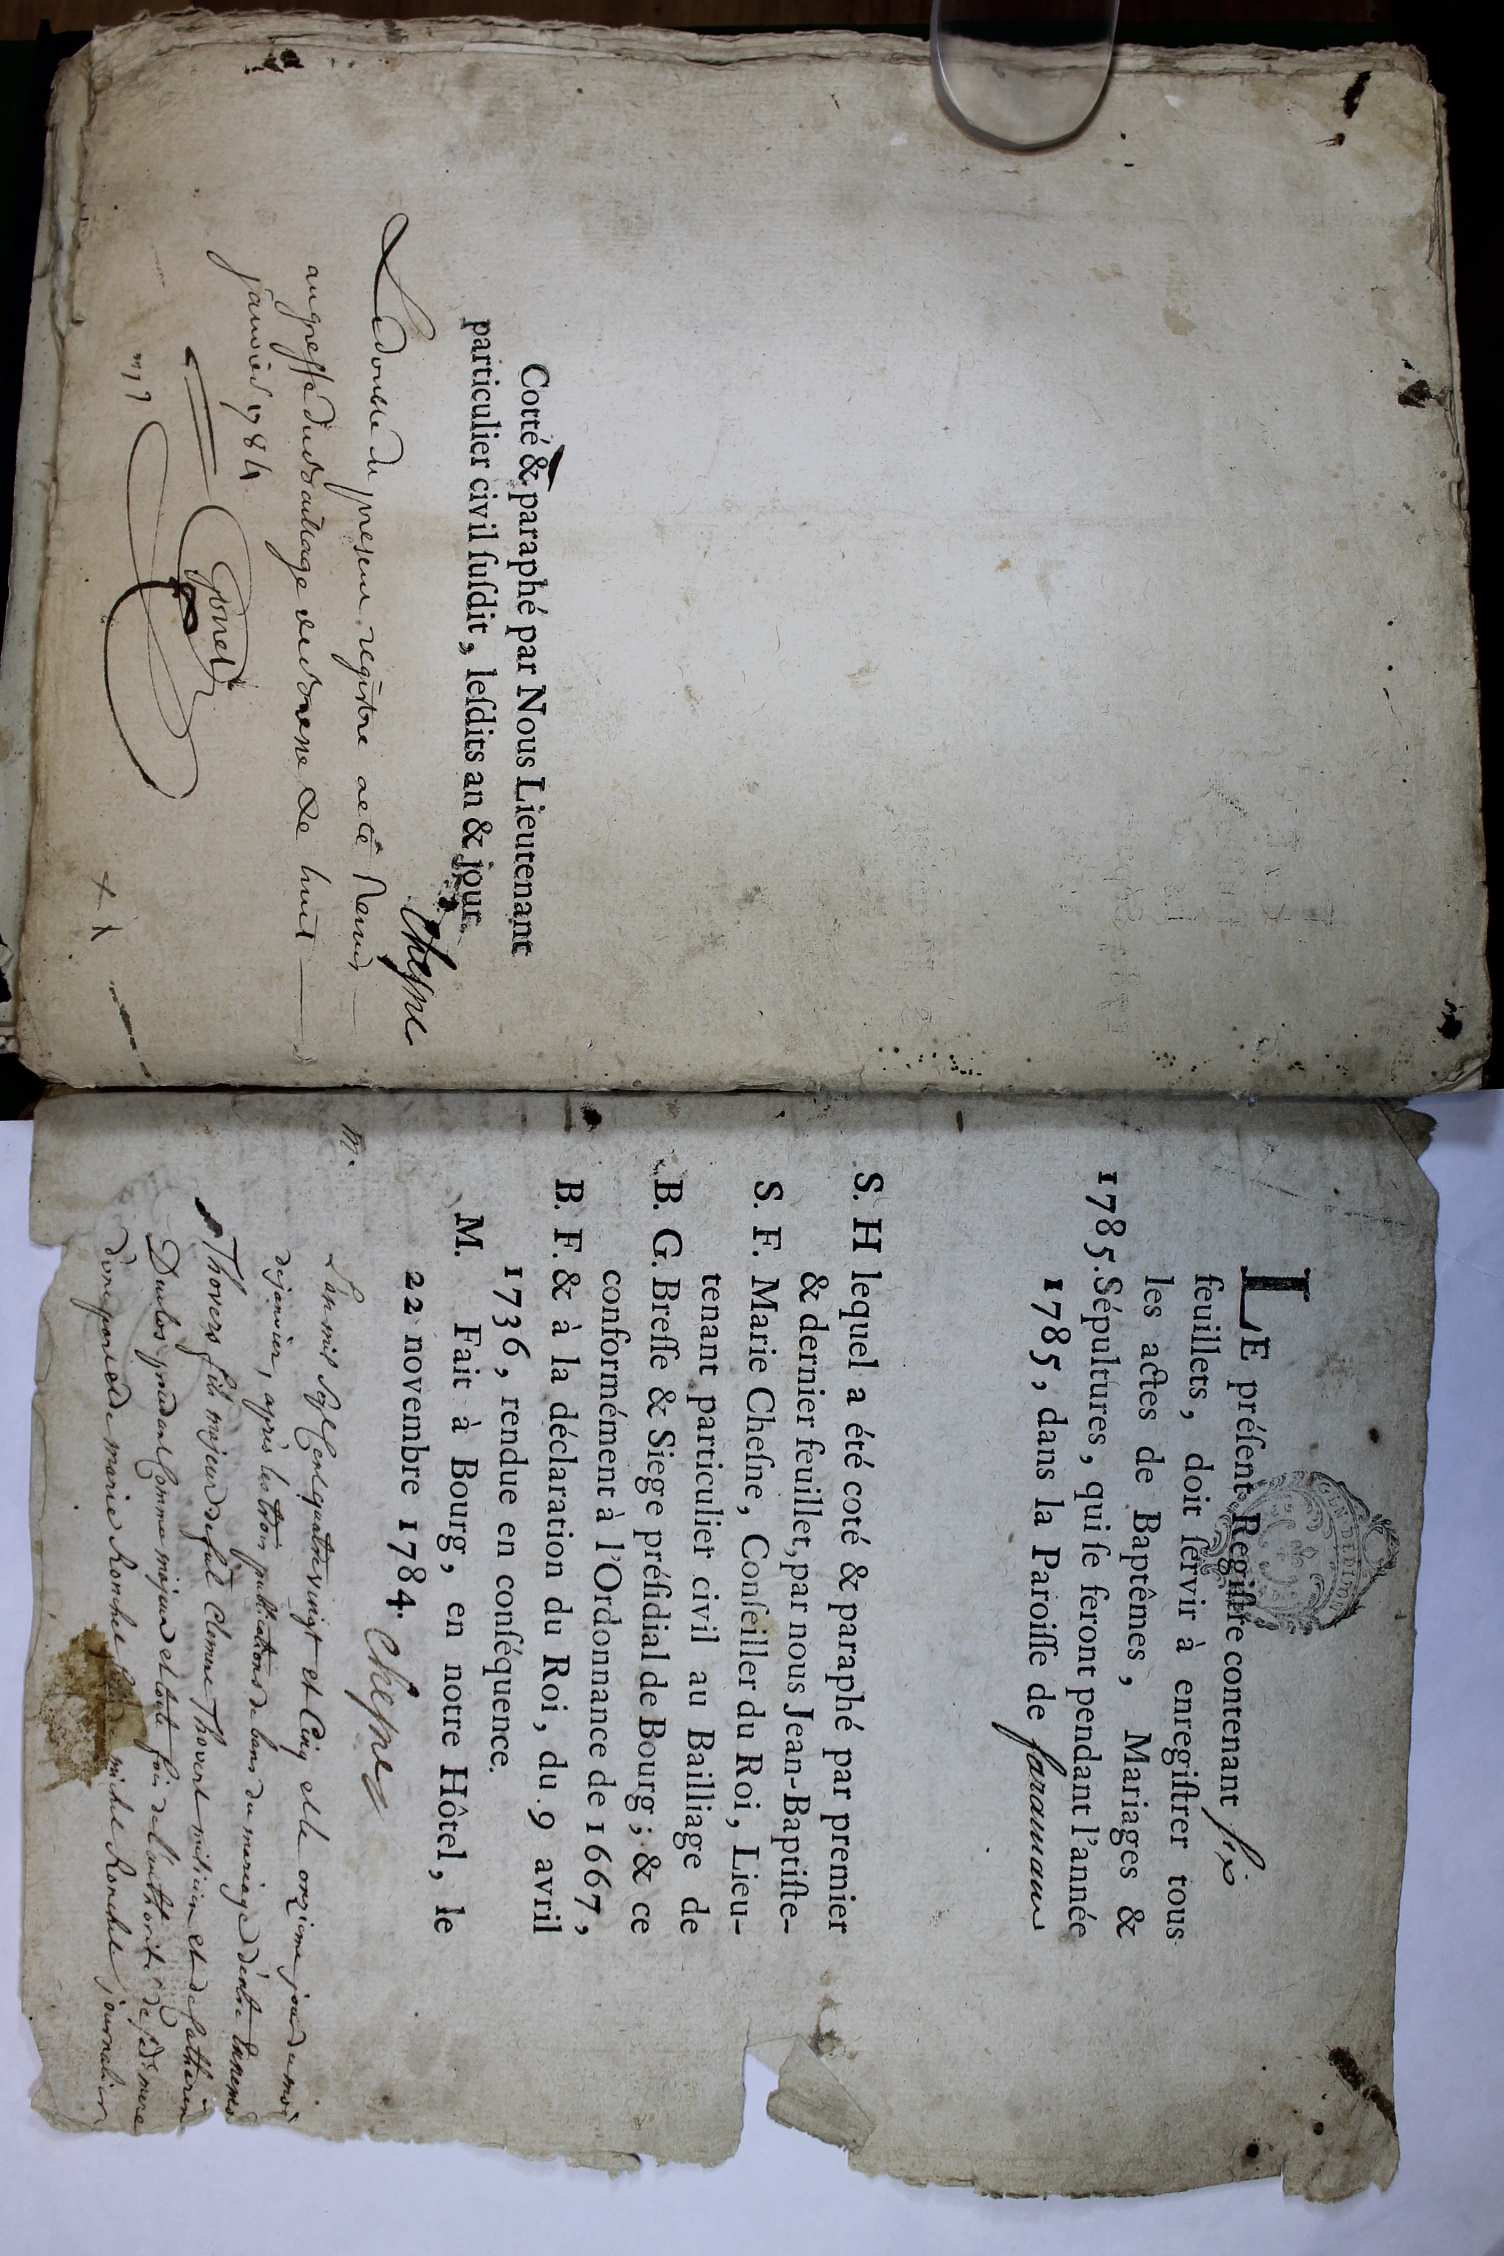 Cotté & paraphé par Nous Lieutenant
particulier civil ſuſdit, leſdits an & jour
Cheſne
Le double du present registre a eté Remis
au greffe du Bailliage de Bresse Le huit
janvier 1784
Gonet
LE préſent Regiſtre contenant six
feuillets, doit ſervir à enregiſtrer tous
les actes de Baptêmes, Mariages &
1785. Sépultures, qui ſe feront pendant l'année
1785, dans la Paroiſſe de faramans
S. H lequel a été coté & paraphé par premier
& dernier feuillet, par nous Jean-Baptiſte-
S. F. Marie Cheſne, Conſeiller du Roi, Lieu-
tenant particulier civil au Bailliage de
B. G. Breſſe & Siege préſidial de Bourg; & ce
conformément à l'Ordonnance de 1667,
B. F. & à la déclaration du Roi, du 9 avril
1736, rendue en conſéquence.
M. Fait à Bourg, en notre Hôtel, le
22 novembre 1784. Cheſne
m. L'an mil sept cent quatre vingt et Cinq et le onzieme jour du mois
de janvier, après les trois publications de bans du mariage d'entre
Thovert fils majeur de fût Clement Thovert et de Catherine
Duclos majeur et de l'authorité de sa de mere
d'une part et de marie Ronchet michel Ronchet journalier